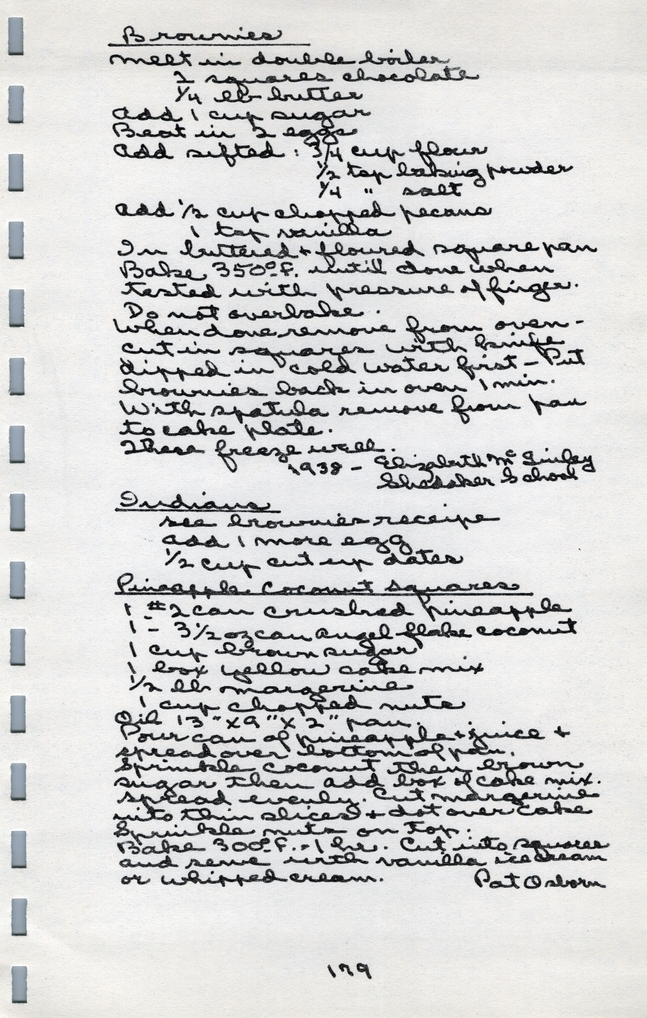 Brownies
Melt in double boiler
2 squares chocolate
1/4 lb butter
Add 1 cup sugar
Beat in 2 eggs
Add sifted: 3/4 cup flour
1/2 tsp baking powder
1/4 " salt
Add 1/2 cup chopped pecans
1 tsp vanilla
In buttered & floured square pan
Bake 350° F. until done when
tested with pressure of finger.
Do not overbake.
When done remove from oven-
cut in squares with knife
dipped in cold water first - Put
brownies back in oven 1 min.
With spatula remove from pan
to cake plate.
These freeze well.
1938 - Elizabeth McGinley
School
Indians
see brownies receipe
add 1 more egg
1/2 cup cut up dates
Pineapple Coconut Squares
1 #2 can crushed pineapple
1 - 3 1/2 oz can angel flake coconut
1 cup brown sugar
1 box yellow cake mix
1/2 lb margerine
1 cup chopped nuts
Oil 13" x 9" x 2" pan.
Pour can of pineapple & juice &
spread over bottom of pan.
Sprinkle coconut then brown
sugar then add box of cake mix.
spread evenly. Cut margerine
into thin slices & dot over cake
Sprinkle nuts on top.
Bake 300° F. - 1 hr. Cut into squares
and serve with vanilla ice cream
or whipped cream. Pat Osborn
179